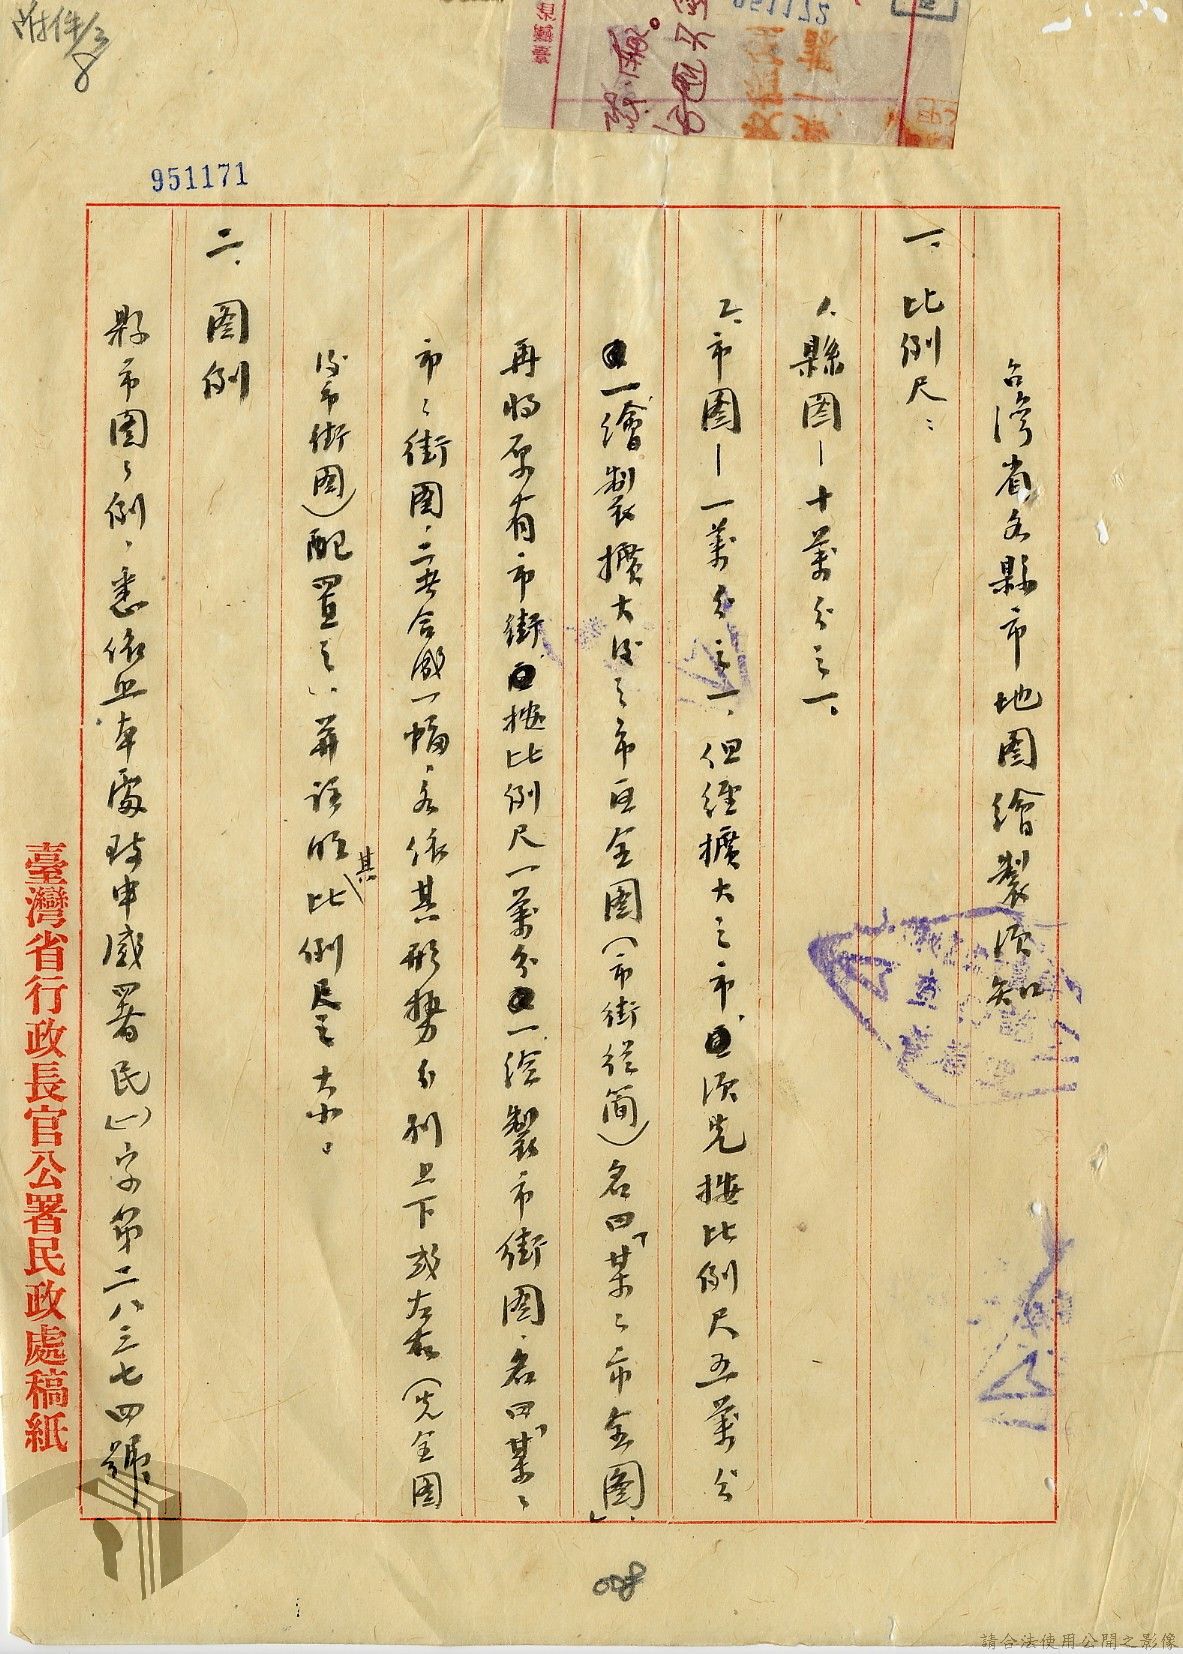 附件三
8
951172
951171
台灣省各縣市地图繪製須知
一、比例尺：
1、縣图—十萬分之一。
2、市图—一萬分之一，但經擴大之市，須先按比例尺五萬分
一繪製擴大後之市区全图（市街從简）名曰「某某市全图」，
再將原有市街按比例尺一萬分一绘製市街图，名曰「某某
市」街图，二者合成一幅，各依其形势分列上下或左右（先全图
後市街图）配置之，並註明其比例尺之大小。
二、图例
縣市图图例，悉依照本處致申感署民（一）字第二八三七四號
臺灣省行政長官公署民政處稿紙
008
請合法使用公開之影像